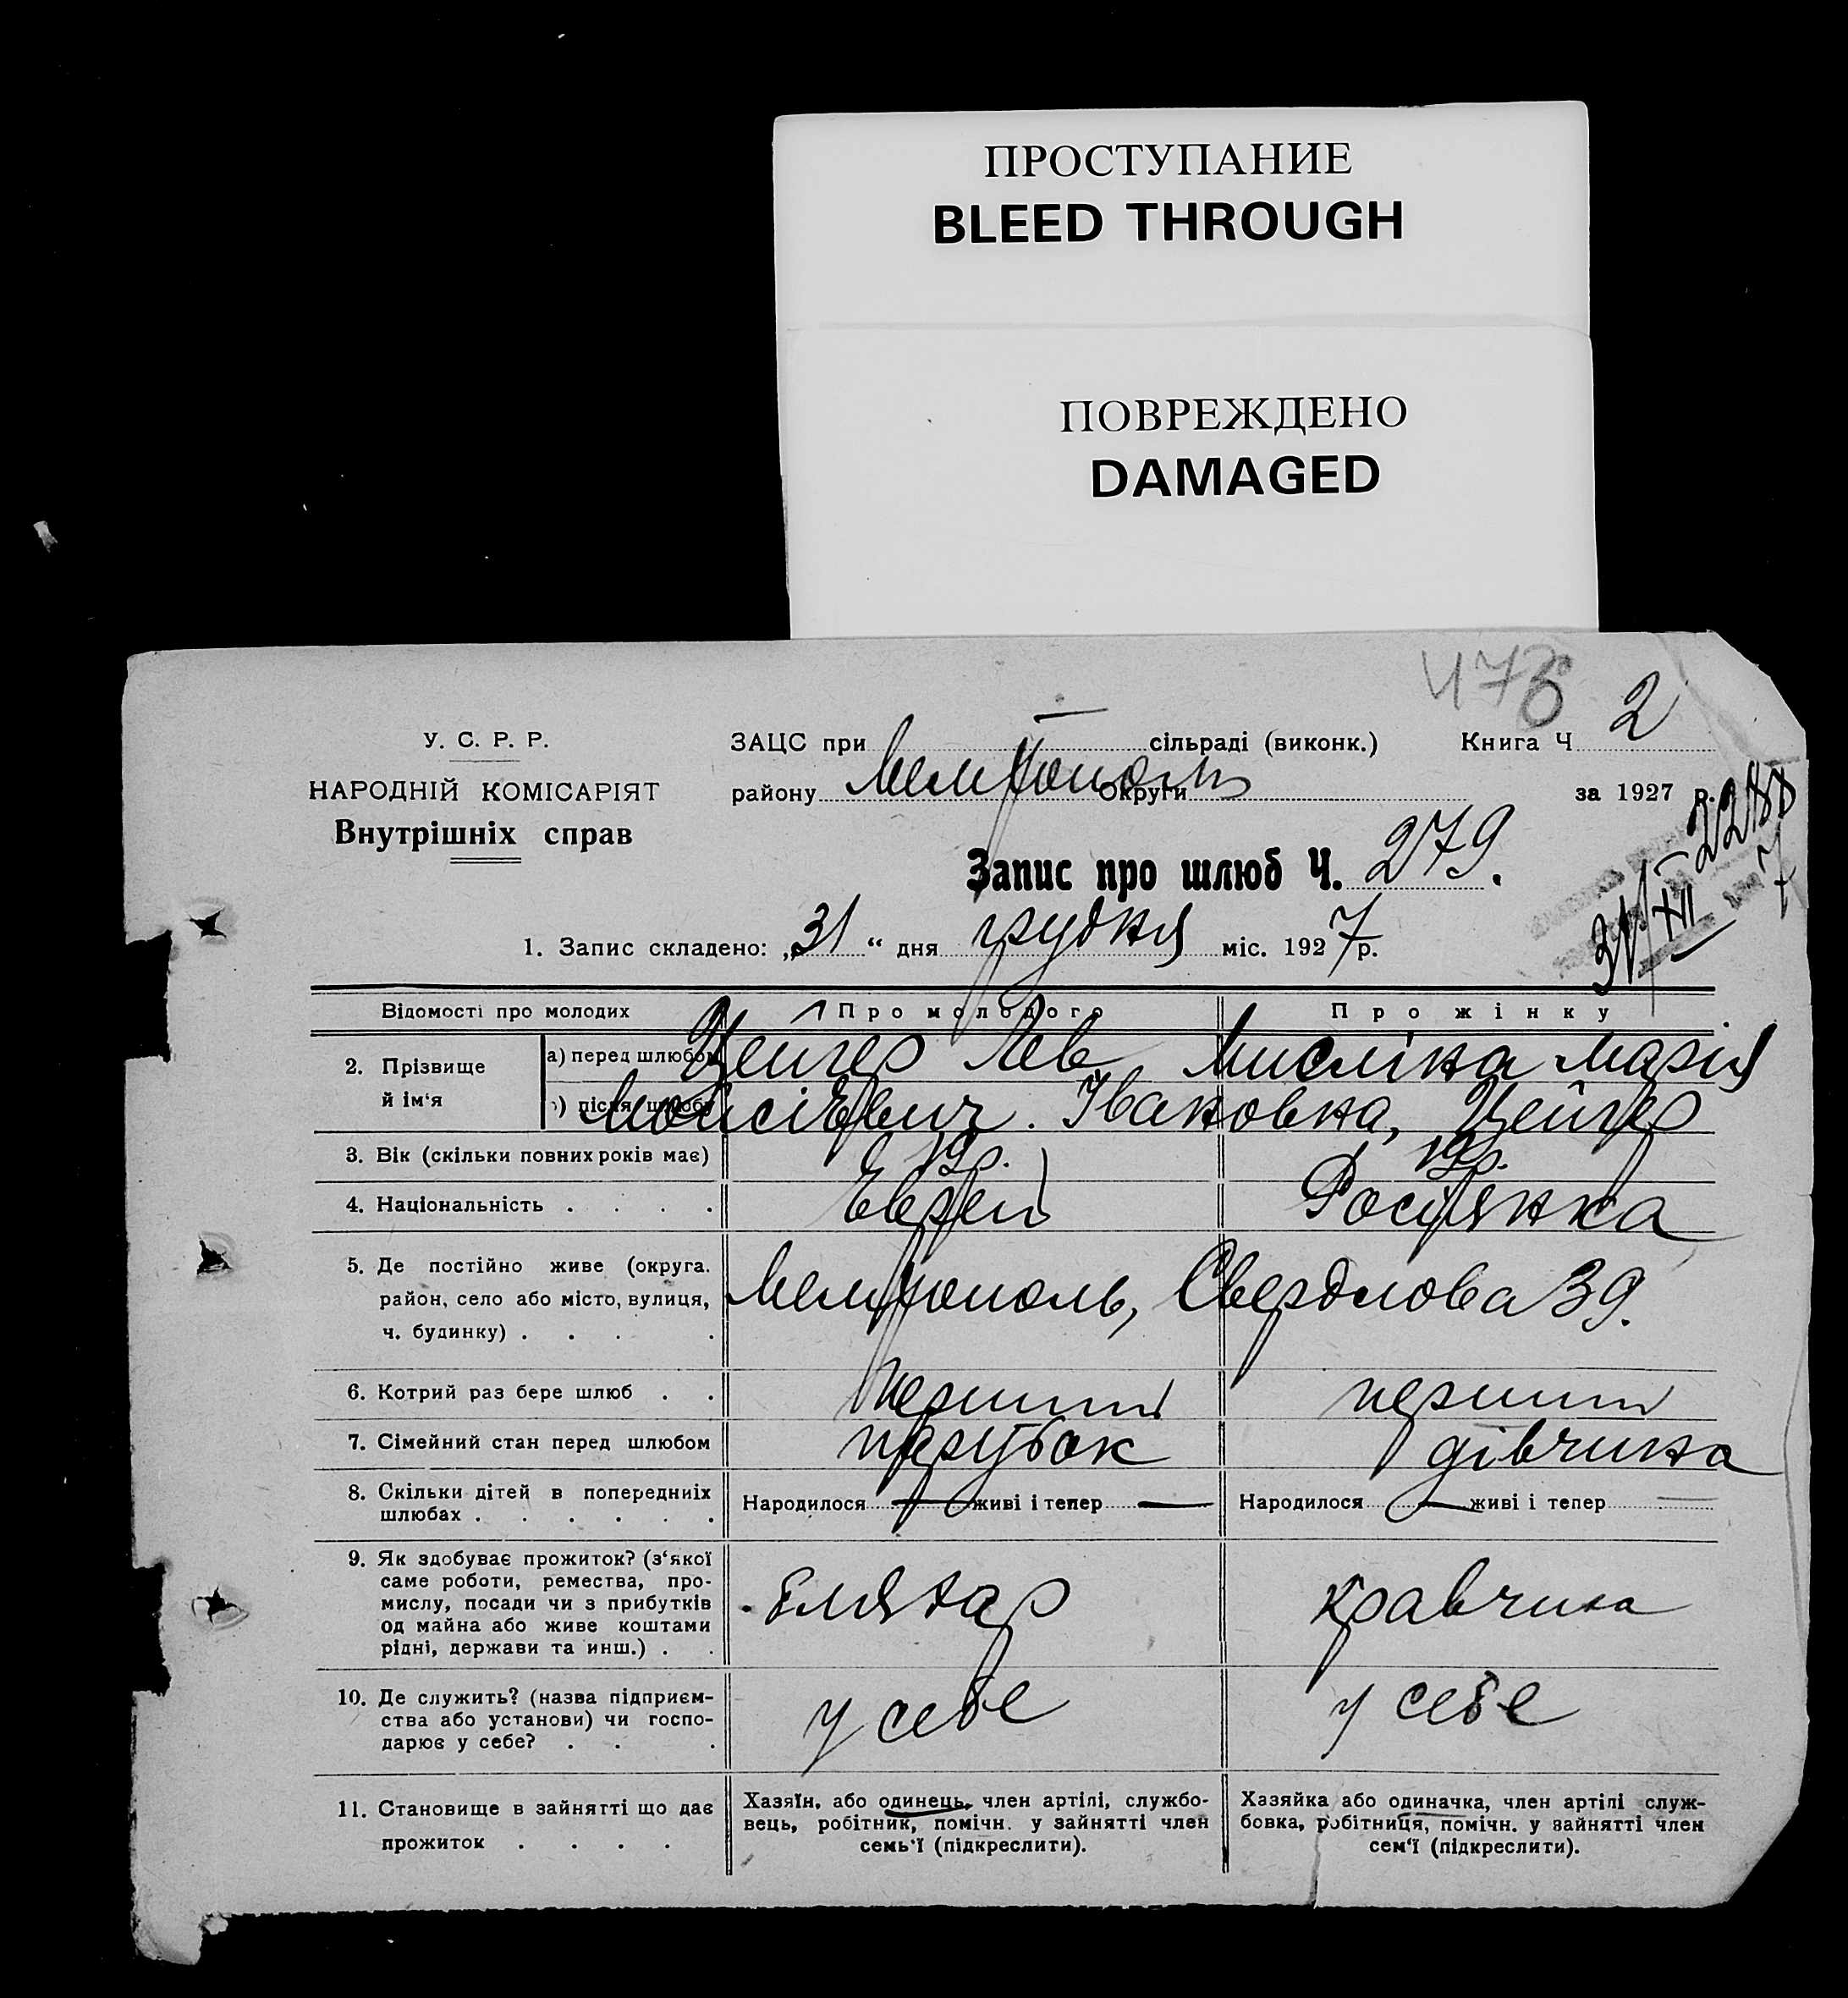 ПРОСТУПАНИЕ
BLEED THROUGH
ПОВРЕЖДЕНО
DAMAGED
У. С. Р. Р.
НАРОДНІЙ КОМІСАРІЯТ
Внутрішніх справ
ЗАЦС при сільраді (виконк.)
Книга Ч 2
району Мелітополь Округи
за 1927 р.
Запис про шлюб Ч. 279.
31/XII
1. Запис складено: „31“ дня грудня міс. 1927 р.
Відомості про молодих
Про молодого
Про жінку
2. Прізвище й ім‘я
а) перед шлюбом Цейгер Лев Мисліна Марія
) після шлюбу Мойсієвич. Івановна, Цейгер
3. Вік (скільки повних років має) 19р. 19р.
4. Національність . . . . Еврей Росіянка
5. Де постійно живе (округа.
район, село або місто, вулиця,
ч. будинку) . . . .
Мелітополь, Свердлова 39.
6. Котрий раз бере шлюб . . перший перший
7. Сімейний стан перед шлюбом парубок дівчина
8. Скільки дітей в попередніх
шлюбах . . . . . .
Народилося — живі і тепер —
Народилося — живі і тепер —
9. Як здобуває прожиток? (з‘якої
саме роботи, ремества, про-
мислу, посади чи з прибутків
од майна або живе коштами
рідні, держави та инш.) . .
бляхар
кравчиха
10. Де служить? (назва підприєм-
ства або установи) чи госпо-
дарює у себе? . . .
у себе
у себе
11. Становище в зайнятті що дає
прожиток . . . .
Хазяїн, або одинець, член артілі, службо-
вець, робітник, помічн. у зайнятті член
семь‘ї (підкреслити).
Хазяйка або одиначка, член артілі служ-
бовка, робітниця, помічн. у зайнятті член
сем‘ї (підкреслити).